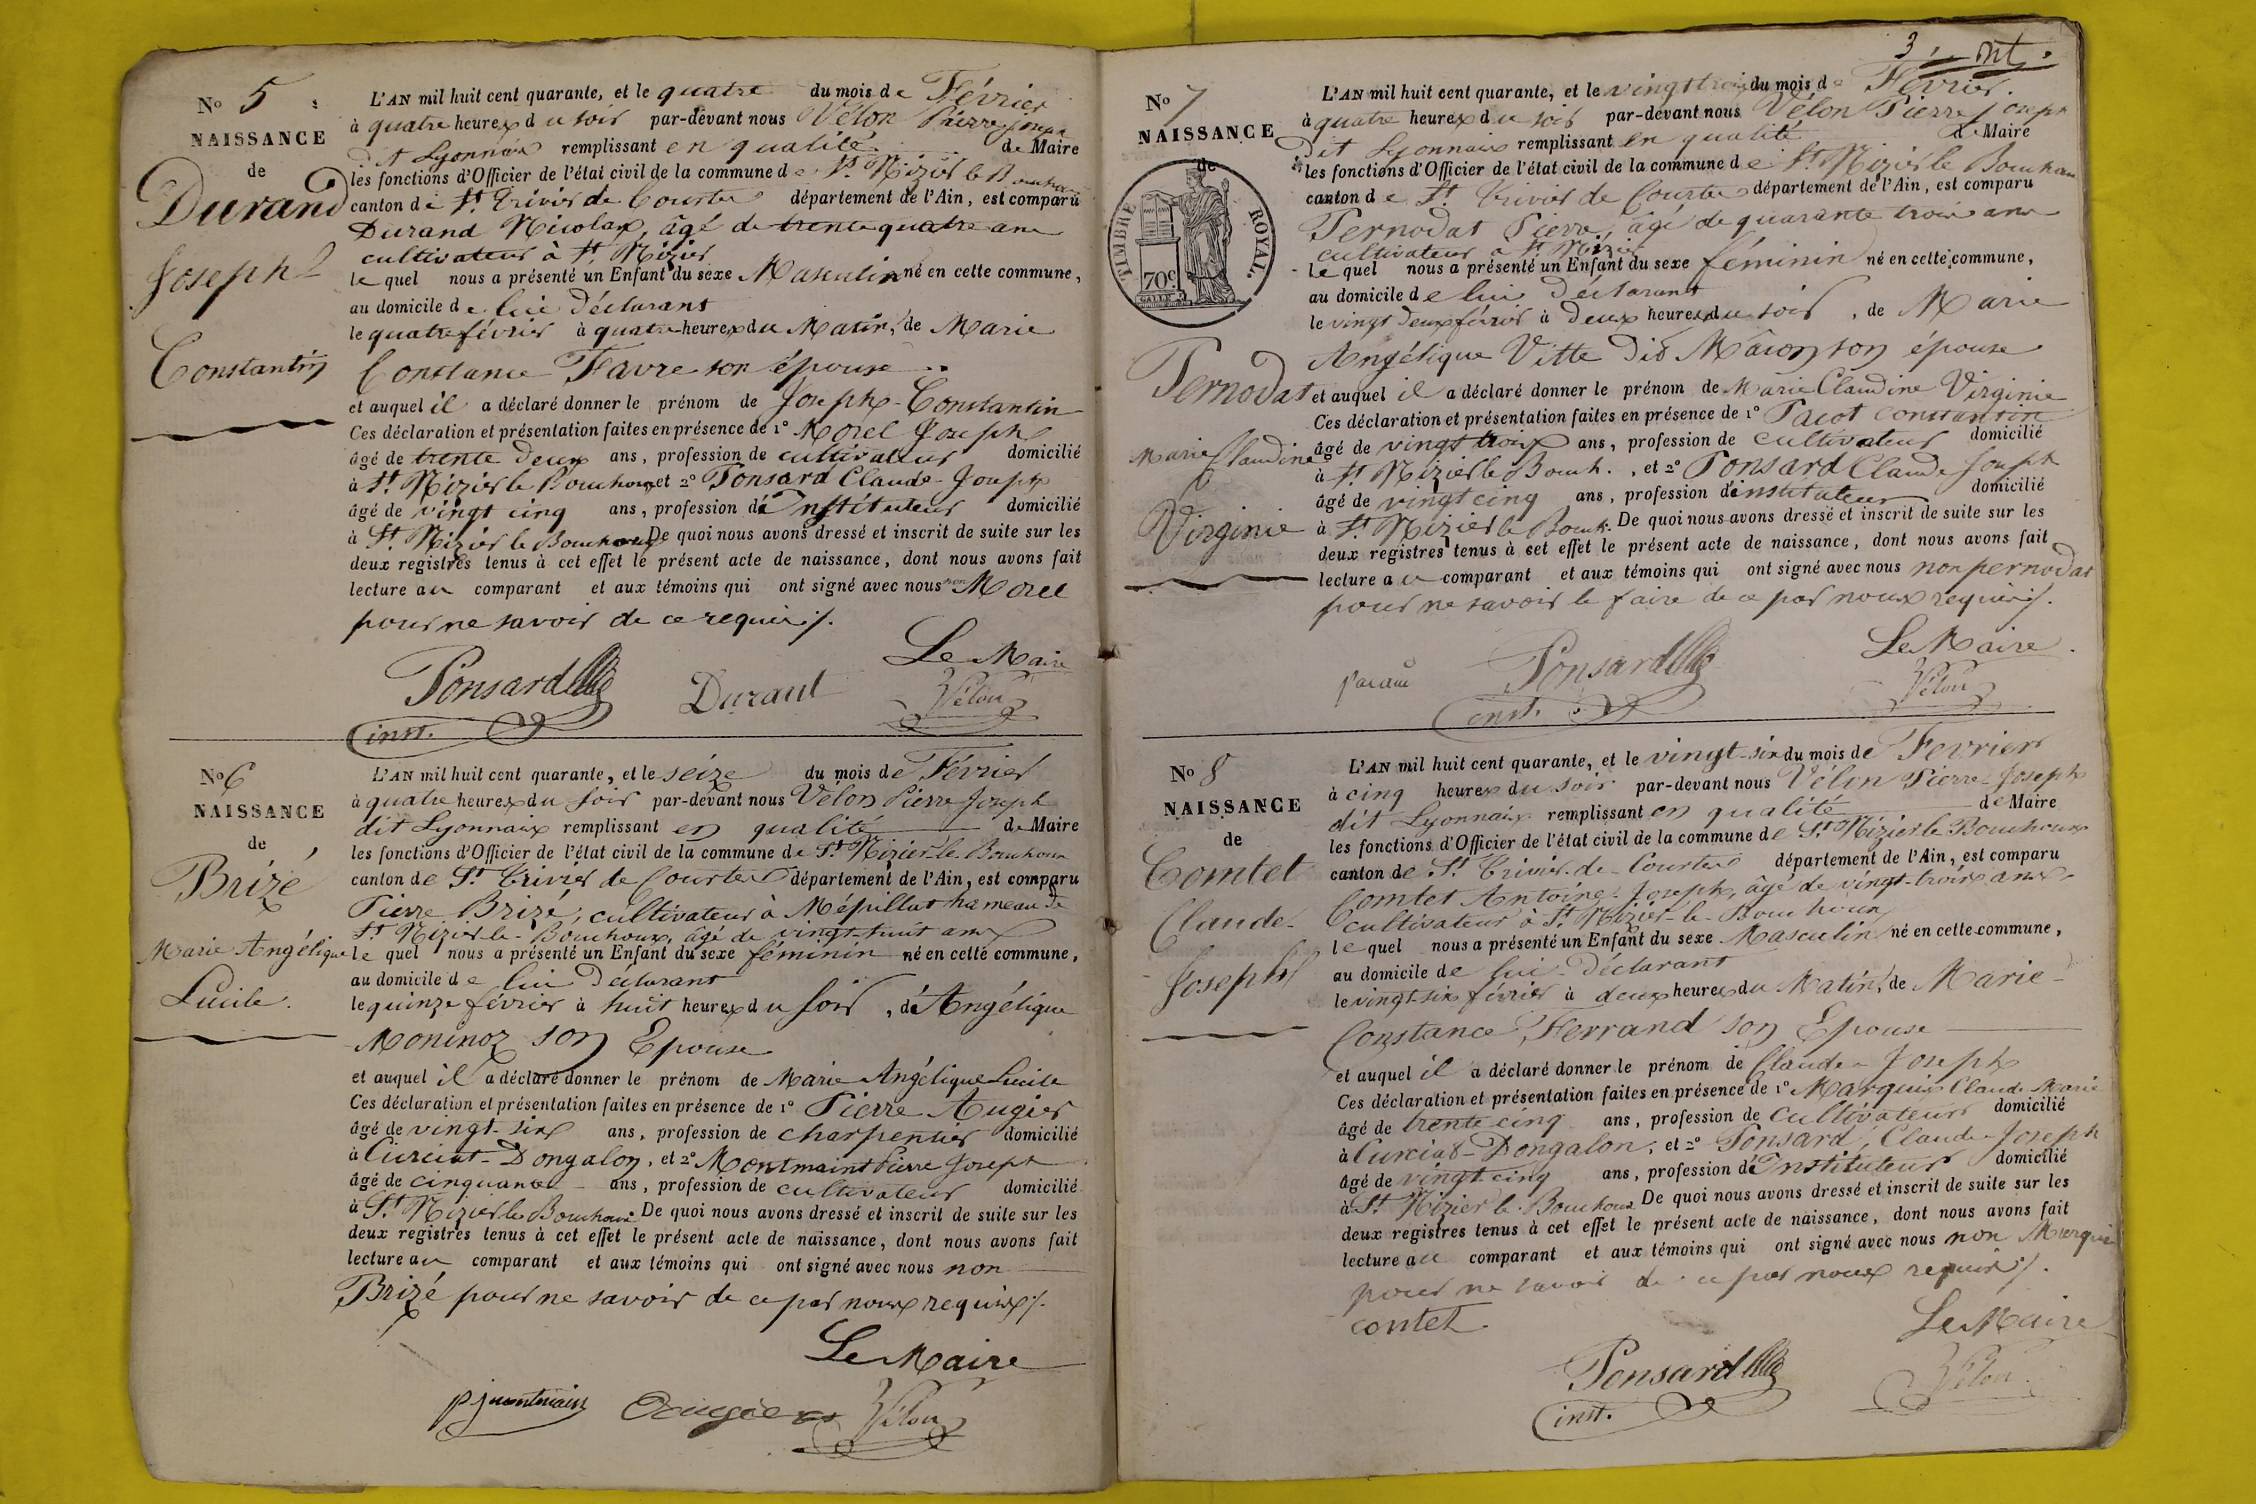 No 5
NAISSANCE
de
Durand
Joseph
Constantin
L'AN mil huit cent quarante, et le quatre du mois de Février
à quatre heures du soir par-devant nous Vélon Pierre Joseph
dit Lyonnais remplissant en qualité de Maire
les fonctions d'Officier de l'état civil de la commune de St. Nizier le Bouchoux
canton de St. Trivier de Courtes département de l'Ain, est comparu
Durand Nicolas, âgé de trente quatre ans
cultivateur à St. Nizier
le quel nous a présenté un Enfant du sexe Masculin né en cette commune,
au domicile de lui déclarant
le quatre février à quatre heures du Matin, de Marie
Constance Favre son épouse
et auquel il a déclaré donner le prénom de Joseph-Constantin
Ces déclaration et présentation faites en présence de 1° Morel Joseph
âgé de trente deux ans, profession de cultivateur domicilié
à St. Nizier le Bouchoux et 2° Ponsard Claude-Joseph
âgé de vingt cinq ans, profession d'Instituteur domicilié
à St. Nizier le Bouchoux De quoi nous avons dressé et inscrit de suite sur les
deux registres tenus à cet effet le présent acte de naissance, dont nous avons fait
lecture au comparant et aux témoins qui ont signé avec nous non Morel
pour ne savoir de ce requis/.
Le Maire
Ponsard
Durant
Vélon
inst.
No 6
NAISSANCE
de
Brizé
Marie Angélique
Lucile.
L'AN mil huit cent quarante, et le seize du mois de Février
à quatre heures du soir par-devant nous Vélon Pierre Joseph
dit Lyonnais remplissant en qualité de Maire
les fonctions d'Officier de l'état civil de la commune de St. Nizier-le-Bouchoux
canton de St. Trivier de Courtes département de l'Ain, est comparu
Pierre Brizé, cultivateur à Mépillat hameau de
St. Nizier-le-Bouchoux, âgé de vingt-huit ans
le quel nous a présenté un Enfant du sexe féminin né en cette commune,
au domicile de lui déclarant
le quinze février à huit heures du soir, de Angélique
Moninoz son Epouse
et auquel il a déclaré donner le prénom de Marie Angélique Lucile
Ces déclaration et présentation faites en présence de 1° Pierre Augier
âgé de vingt-six ans, profession de charpentier domicilié
à Curciat-Dongalon, et 2° Montmaint Pierre Joseph
âgé de cinquante ans, profession de cultivateur domicilié
à St. Nizier le Bouchoux De quoi nous avons dressé et inscrit de suite sur les
deux registres tenus à cet effet le présent acte de naissance, dont nous avons fait
lecture au comparant et aux témoins qui ont signé avec nous non
Brizé pour ne savoir de ce par nous requis/.
Le Maire
Vélon
3
No 7
NAISSANCE
de
TIMBRE ROYAL.
70c.
Pernodat
Marie Claudine
Virginie
L'AN mil huit cent quarante, et le vingt trois du mois de Février.
à quatre heures du soir par-devant nous Vélon Pierre Joseph
Dit Lyonnais remplissant en qualité de Maire
les fonctions d'Officier de l'état civil de la commune de St. Nizier le Bouchoux
canton de St. Trivier de Courtes département de l'Ain, est comparu
Pernodat Pierre, âgé de quarante trois ans
cultivateur à St. Nizier
le quel nous a présenté un Enfant du sexe féminin né en cette commune,
au domicile de lui déclarant
le vingt deux février à deux heures du soir, de Marie
Angélique Vitte dit Mâcon son épouse
et auquel il a déclaré donner le prénom de Marie Claudine Virginie
Ces déclaration et présentation faites en présence de 1° Pacot Constantin
âgé de vingt trois ans, profession de cultivateur domicilié
à St. Nizier le Bouch., et 2° Ponsard Claude Joseph
âgé de vingt cinq ans, profession d'instituteur domicilié
à St. Nizier le Bouch. De quoi nous avons dressé et inscrit de suite sur les
deux registres tenus à cet effet le présent acte de naissance, dont nous avons fait
lecture au comparant et aux témoins qui ont signé avec nous non pernodat
pour ne savoir le faire de ce par nous requis/.
Le Maire.
Ponsard
Vélon
inst.
No 8
NAISSANCE
de
Comtet
Claude-
Joseph
L'AN mil huit cent quarante, et le vingt-six du mois de Fevrier
à cinq heures du soir par-devant nous Vélon Pierre-Joseph
dit Lyonnais remplissant en qualité de Maire
les fonctions d'Officier de l'état civil de la commune de St. Nizier le Bouchoux
canton de St. Trivier-de-Courtes département de l'Ain, est comparu
Comtet Antoine-Joseph, âgé de vingt-trois ans
Cultivateur à St. Nizier-le-Bouchoux
le quel nous a présenté un Enfant du sexe Masculin né en cette commune,
au domicile de lui déclarant
le vingt-six février à deux heures du Matin, de Marie-
Constance Ferrand son Epouse
et auquel il a déclaré donner le prénom de Claude-Joseph
Ces déclaration et présentation faites en présence de 1° Marquis Claude Marie
âgé de trente cinq ans, profession de Cultivateur domicilié
à Curciat-Dongalon, et 2° Ponsard, Claude-Joseph
âgé de vingt cinq ans, profession d'Instituteur domicilié
à St. Nizier le Bouchoux De quoi nous avons dressé et inscrit de suite sur les
deux registres tenus à cet effet le présent acte de naissance, dont nous avons fait
lecture au comparant et aux témoins qui ont signé avec nous non Marquis
pour ne savoir de ce par nous requis/.
contet
Le Maire
Ponsard
Vélon
inst.